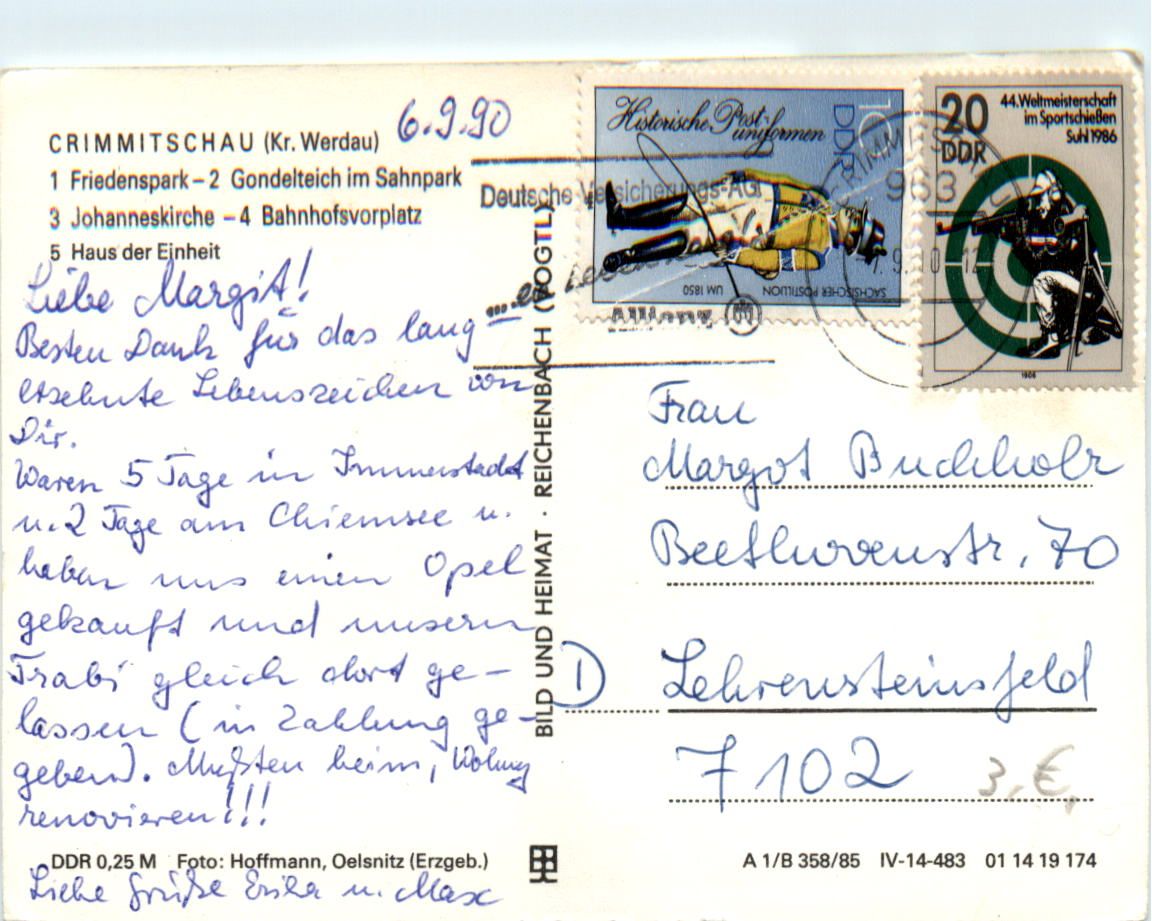 6.9.90
CRIMMITSCHAU (Kr. Werdau)
1 Friedenspark – 2 Gondelteich im Sahnpark
3 Johanneskirche – 4 Bahnhofsvorplatz
5 Haus der Einheit
Liebe Margit!
Besten Dank für das lang
ersehnte Lebenszeichen von
Dir.
Waren 5 Tage in Immenstadt
u. 2 Tage am Chiemsee u.
haben uns einen Opel
gekauft und unsern
Trabi gleich dort ge-
lassen (in Zahlung ge-
geben). Mußten heim, Wohnung
renovieren!!!
DDR 0,25 M Foto: Hoffmann, Oelsnitz (Erzgeb.)
Liebe Grüße Erika u. Max
BILD UND HEIMAT · REICHENBACH (VOGTL)
Deutsche Versicherungs-AG
Allianz
Historische Post-
uniformen
10
DDR
SÄCHSISCHER POSTILLION UM 1850
20
DDR
44. Weltmeisterschaft
im Sportschießen
Suhl 1986
1986
963
Frau
Margot Buchholz
Beethovenstr. 70
D Lehrensteinsfeld
7102
3,€
A 1/B 358/85 IV-14-483 01 14 19 174